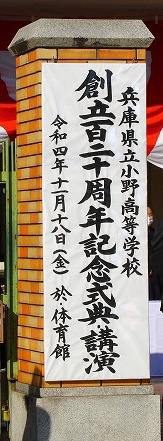 兵庫県立小野高等学校
創立百二十周年記念式典講演
令和四年十一月十八日(金) 於・体育館